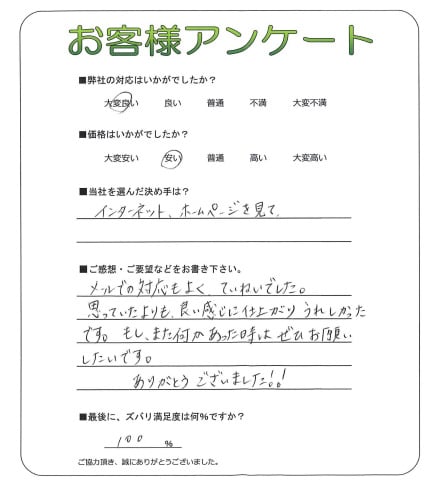 お客様アンケート
■弊社の対応はいかがでしたか？
大変良い 良い 普通 不満 大変不満
■価格はいかがでしたか？
大変安い 安い 普通 高い 大変高い
■当社を選んだ決め手は？
インターネット、ホームページを見て、
■ご感想・ご要望などをお書き下さい。
メールでの対応もよく、ていねいでした。
思っていたよりも、良い感じに仕上がり うれしかった
です。もし、また何かあった時は ぜひ お願い
したいです。
ありがとう ございました!!
■最後に、ズバリ満足度は何%ですか？
100 %
ご協力頂き、誠にありがとうございました。